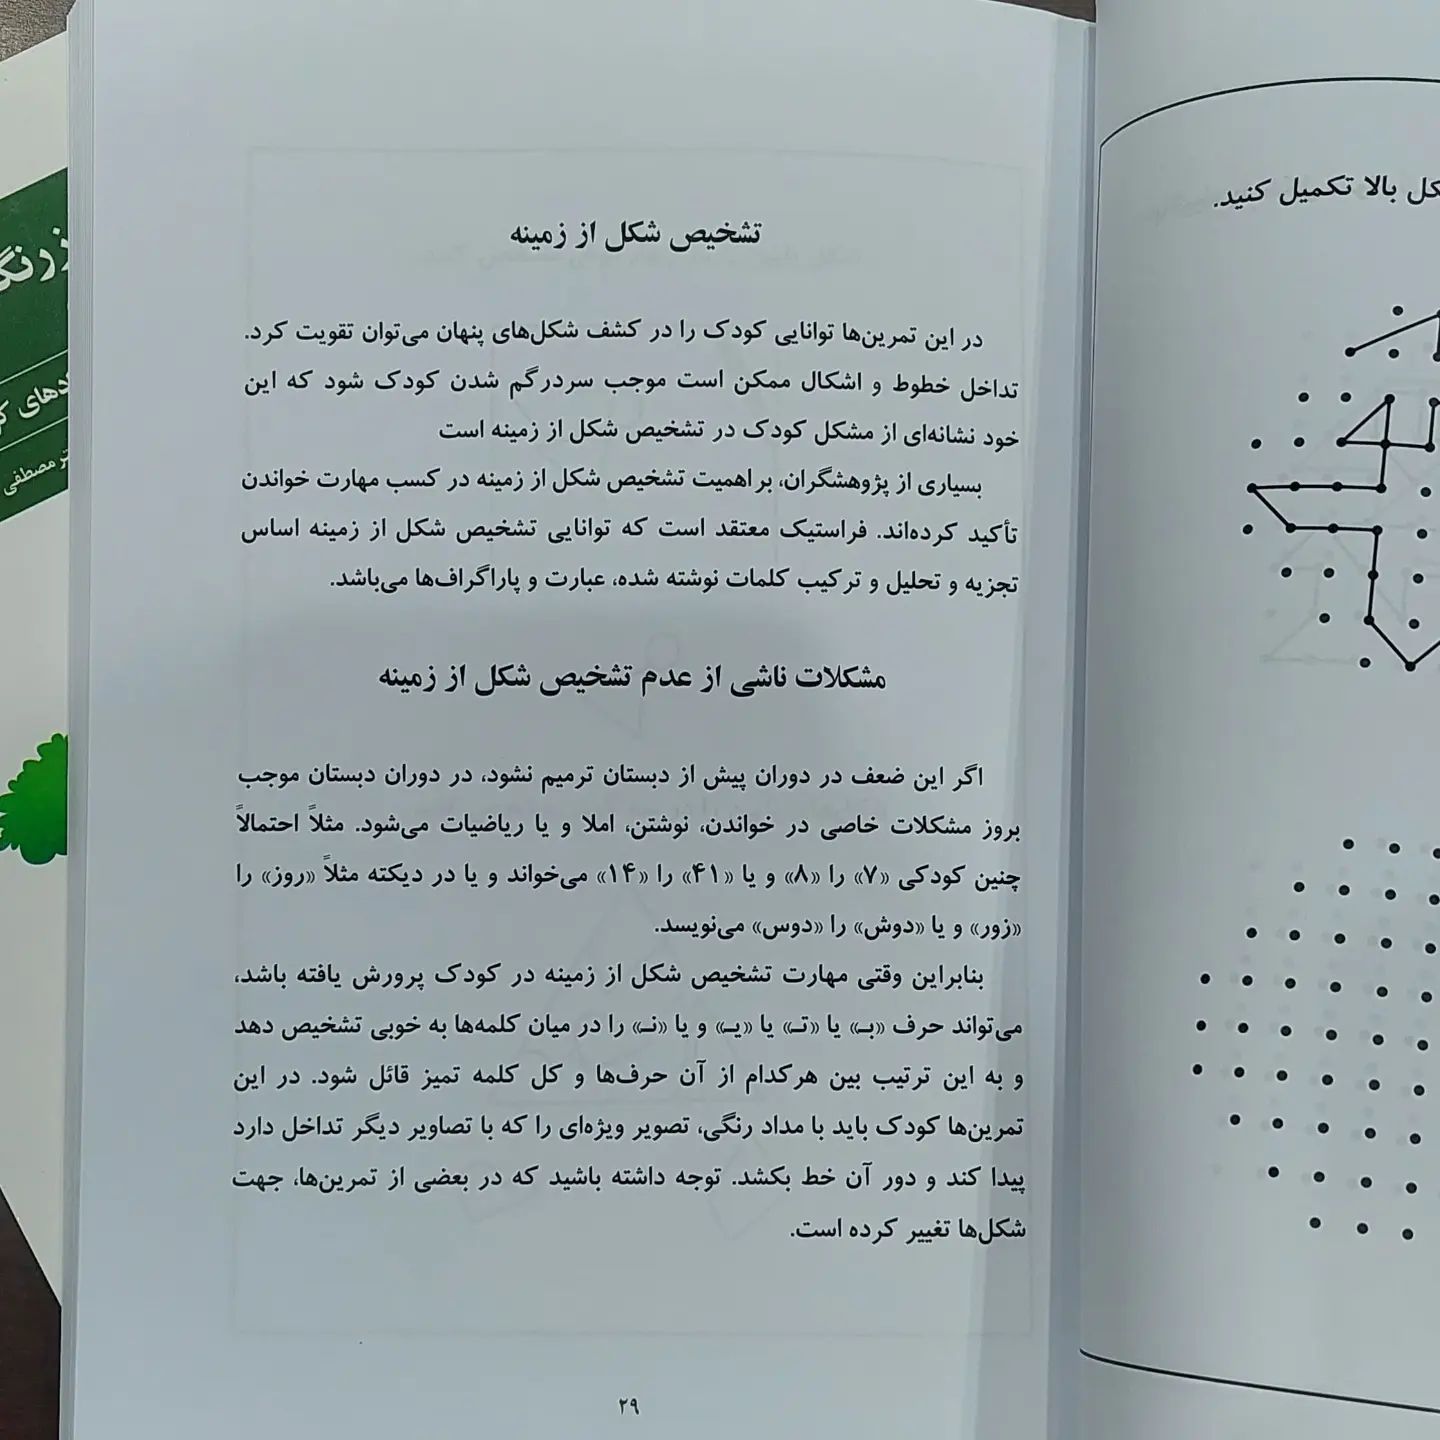 تشخیص شکل از زمینه
در این تمرین‌ها توانایی کودک را در کشف شکل‌های پنهان می‌توان تقویت کرد.
تداخل خطوط و اشکال ممکن است موجب سردرگم شدن کودک شود که این
خود نشانه‌ای از مشکل کودک در تشخیص شکل از زمینه است
بسیاری از پژوهشگران، بر اهمیت تشخیص شکل از زمینه در کسب مهارت خواندن
تأکید کرده‌اند. فراستیک معتقد است که توانایی تشخیص شکل از زمینه اساس
تجزیه و تحلیل و ترکیب کلمات نوشته شده، عبارت و پاراگراف‌ها می‌باشد.
مشکلات ناشی از عدم تشخیص شکل از زمینه
اگر این ضعف در دوران پیش از دبستان ترمیم نشود، در دوران دبستان موجب
بروز مشکلات خاصی در خواندن، نوشتن، املا و یا ریاضیات می‌شود. مثلاً احتمالاً
چنین کودکی «۷» را «۸» و یا «۴۱» را «۱۴» می‌خواند و یا در دیکته مثلاً «روز» را
«زور» و یا «دوش» را «دوس» می‌نویسد.
بنابراین وقتی مهارت تشخیص شکل از زمینه در کودک پرورش یافته باشد،
می‌تواند حرف «بـ» یا «تـ» یا «یـ» و یا «نـ» را در میان کلمه‌ها به خوبی تشخیص دهد
و به این ترتیب بین هرکدام از آن حرف‌ها و کل کلمه تمیز قائل شود. در این
تمرین‌ها کودک باید با مداد رنگی، تصویر ویژه‌ای را که با تصاویر دیگر تداخل دارد
پیدا کند و دور آن خط بکشد. توجه داشته باشید که در بعضی از تمرین‌ها، جهت
شکل‌ها تغییر کرده است.
۲۹
بالا تکمیل کنید.
مصطفی